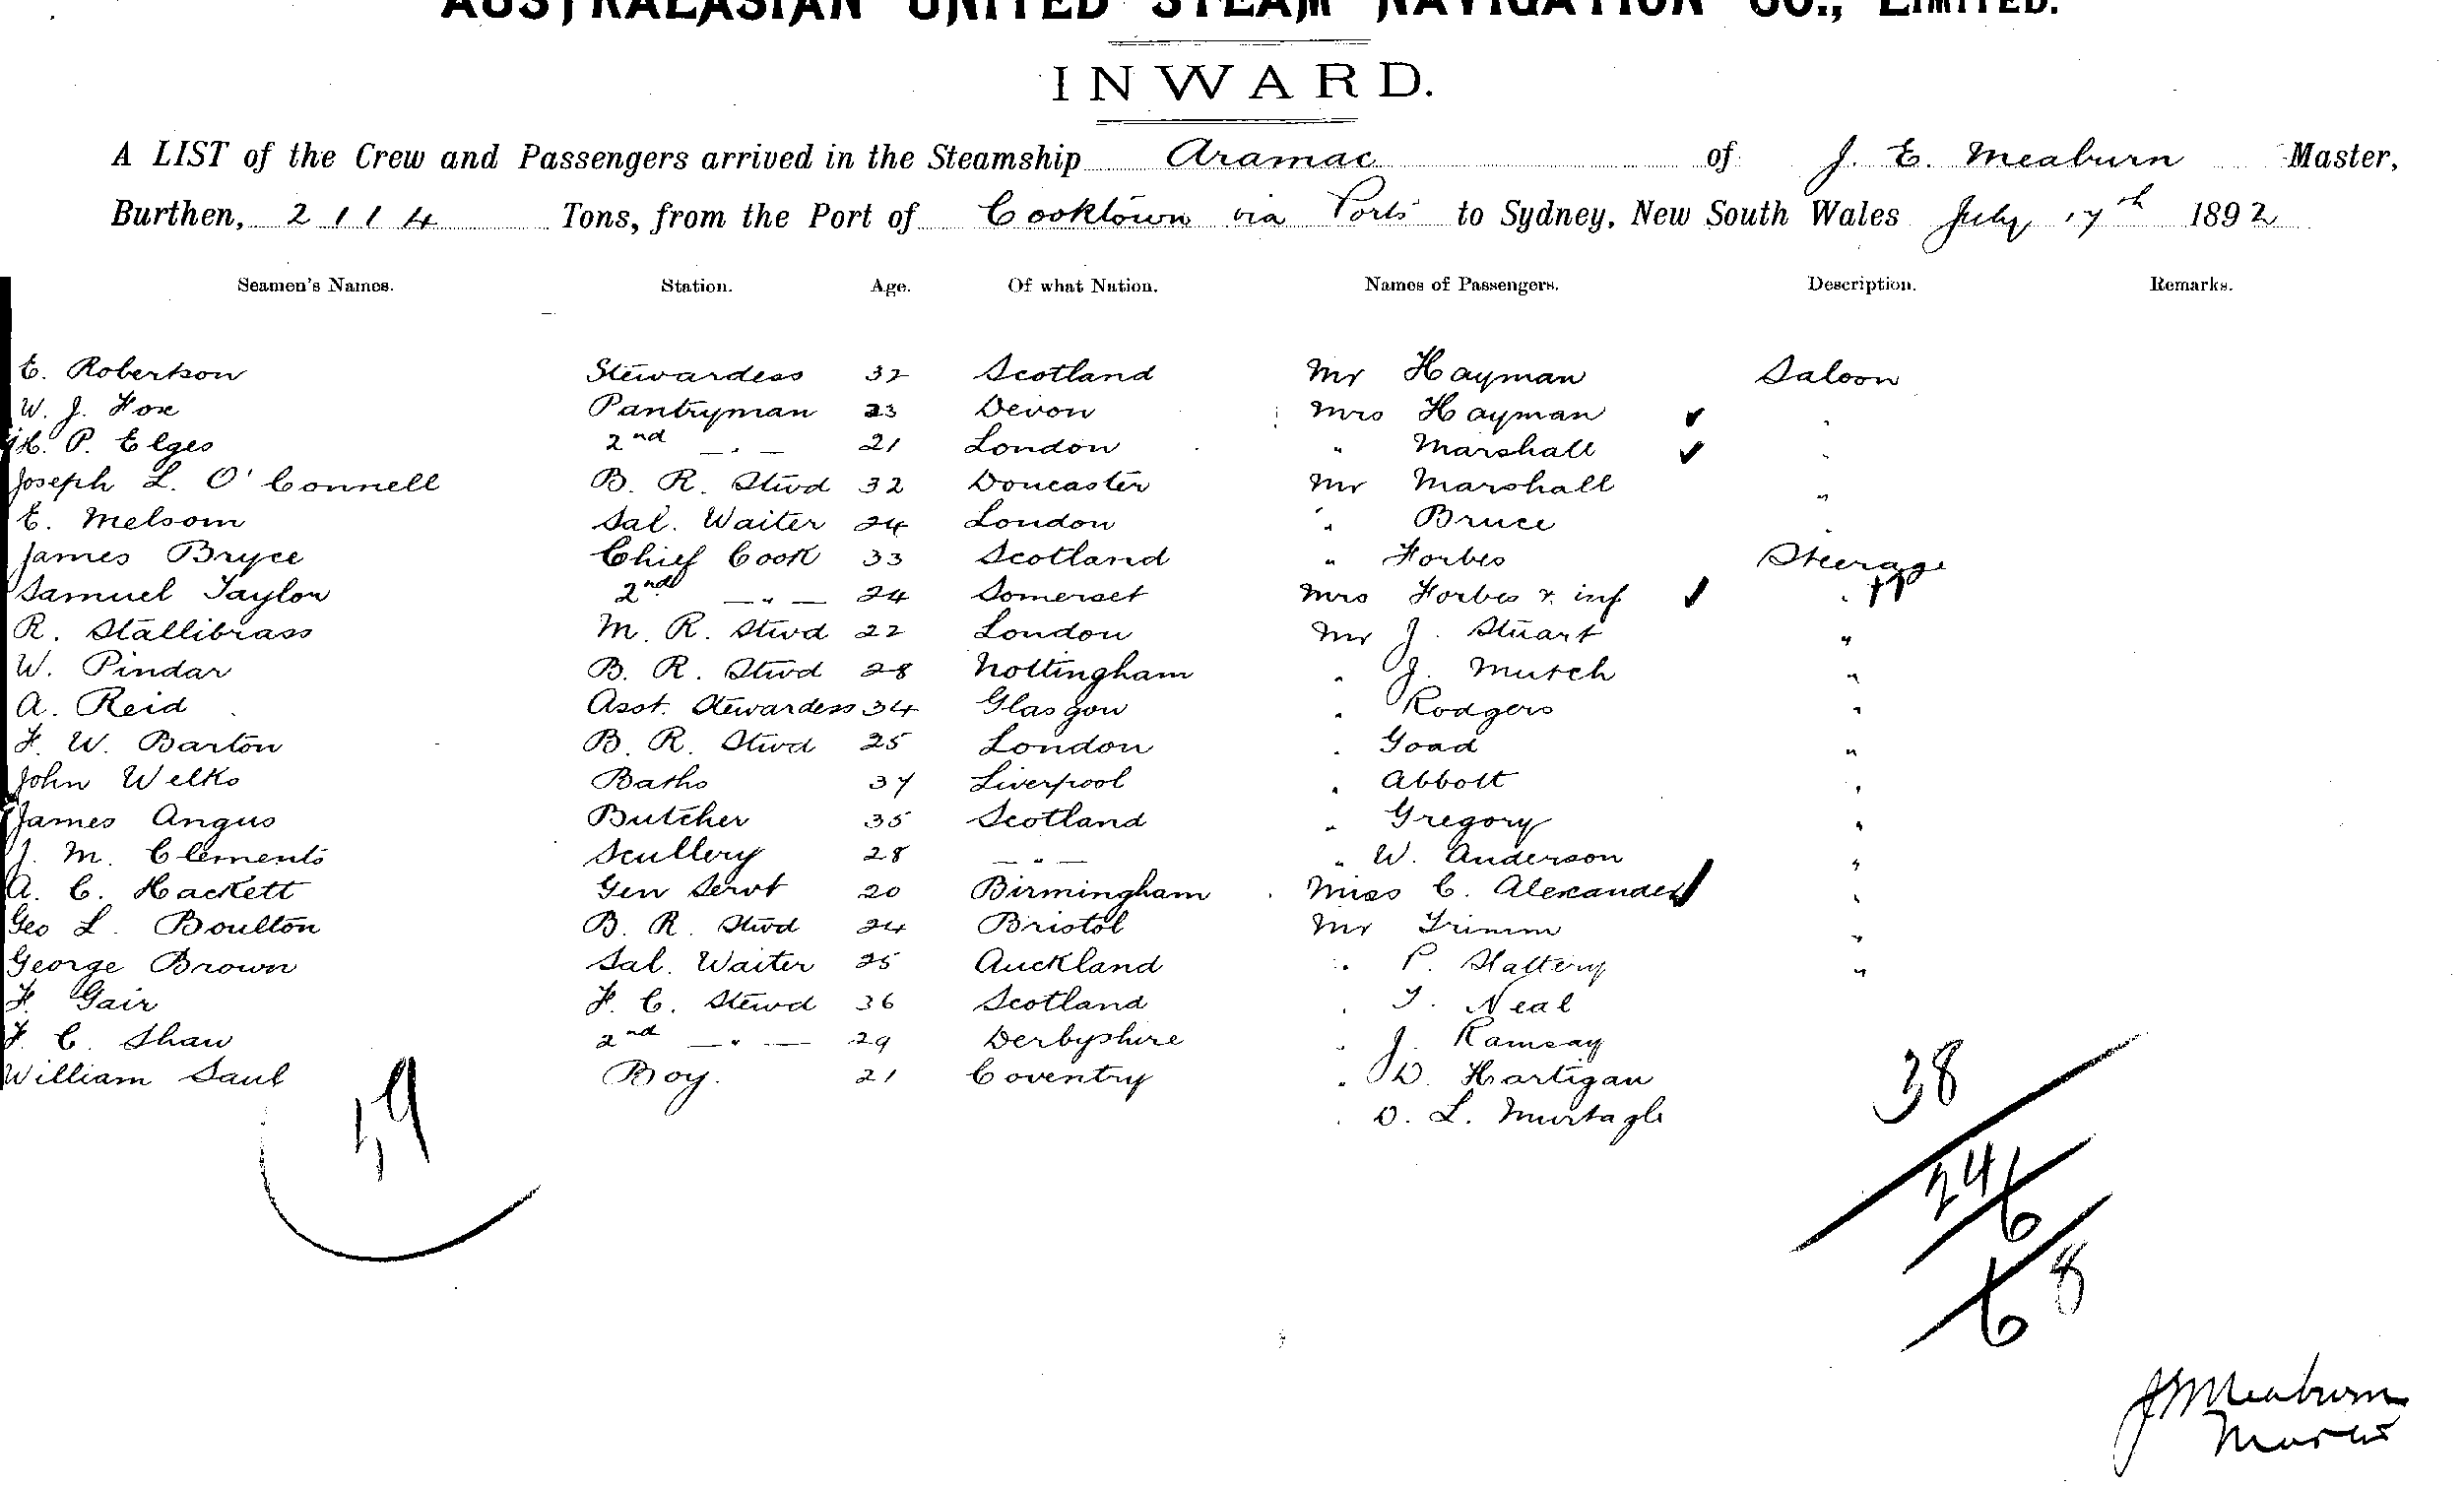 AUSTRALASIAN UNITED STEAM NAVIGATION CO., LIMITED.
INWARD.
A LIST of the Crew and Passengers arrived in the Steamship Aramac of J. E. Meaburn Master,
Burthen, 2114 Tons, from the Port of Cooktown via Ports to Sydney, New South Wales July 17th 1892
Seamen's Names. Station. Age. Of what Nation. Names of Passengers. Description. Remarks.
E. Robertson Stewardess 32 Scotland Mr Hayman Saloon
W. J. Fox Pantryman 23 Devon Mrs Hayman ✓ "
H. P. Elges 2nd — " — 21 London " Marshall ✓ "
Joseph L. O'Connell B. R. Stwd 32 Doncaster Mr Marshall "
E. Melsom Sal. Waiter 24 London " Bruce "
James Bryce Chief Cook 33 Scotland " Forbes Steerage
Samuel Taylor 2nd — " — 24 Somerset Mrs Forbes & inf ✓ "
R. Stallibrass M. R. Stwd 22 London Mr J. Stuart "
W. Pindar B. R. Stwd 28 Nottingham " J. Mutch "
A. Reid Asst. Stewardess 34 Glasgow " Rodgers "
F. W. Barton B. R. Stwd 25 London " Goad "
John Welks Baths 37 Liverpool " Abbott "
James Angus Butcher 35 Scotland " Gregory "
J. M. Clements Scullery 28 — " — " W. Anderson "
A. C. Hackett Gen Servt 20 Birmingham Miss C. Alexander ✓ "
Geo L. Boulton B. R. Stwd 24 Bristol Mr Trimm "
George Brown Sal. Waiter 25 Auckland " P. Slattery "
F. Gair F. C. Stewd 36 Scotland " T. Neal
F. C. Shaw 2nd — " — 29 Derbyshire " J. Ramsay
William Saul Boy. 21 Coventry " D. Hartigan
" D. L. Murtagh
38
24
6
6 8
J E Meaburn
Master